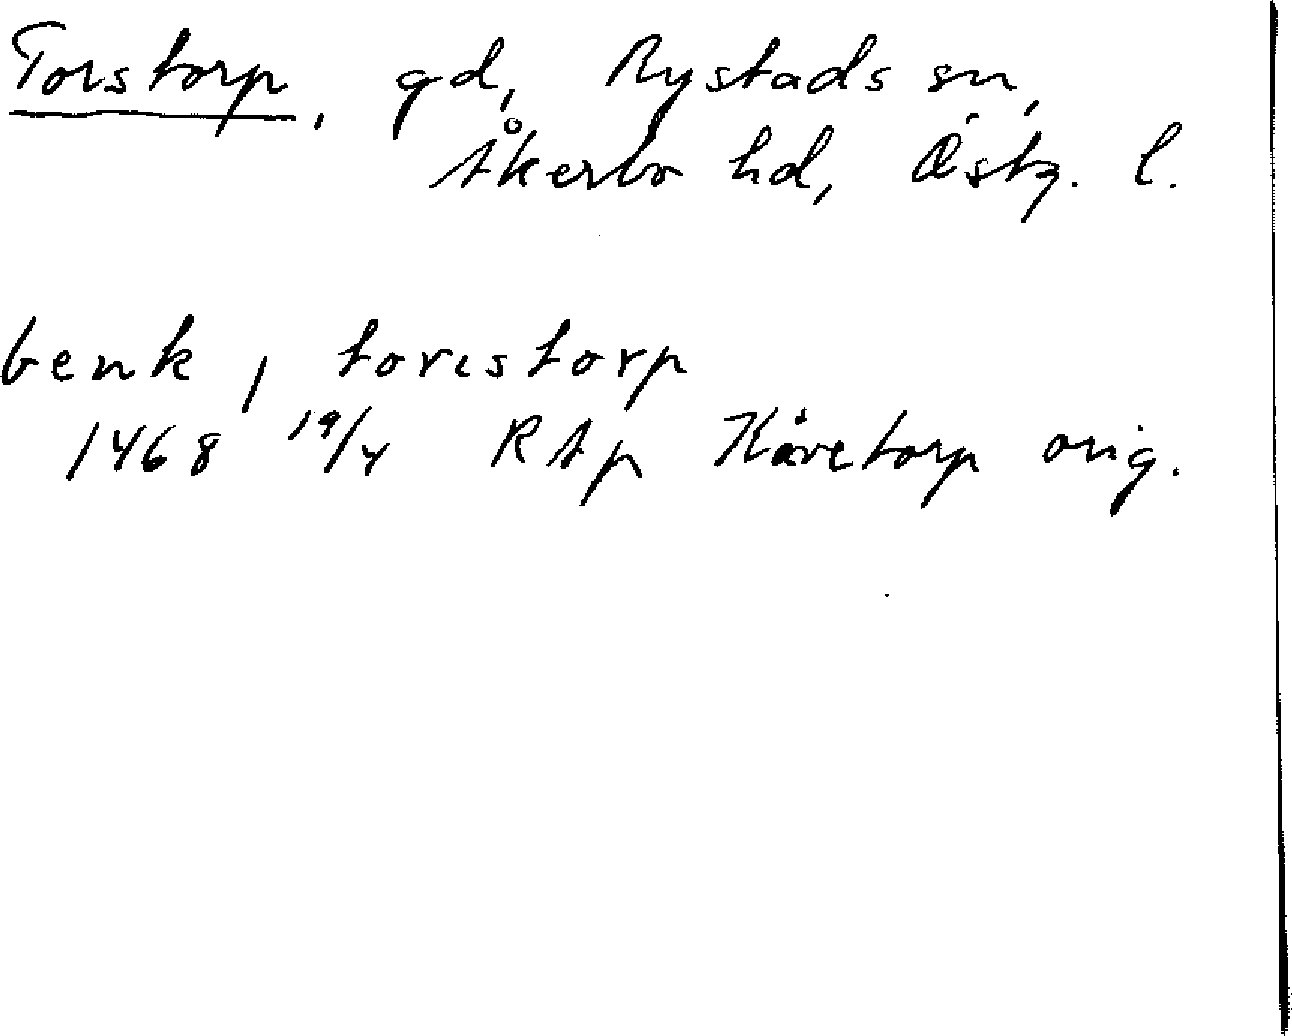 Torstorp, gd, Rystads sn,
Åkerbo hd, Östg. l.
benk, i toristorp
1468 19/4 RAp Kåretorp orig.